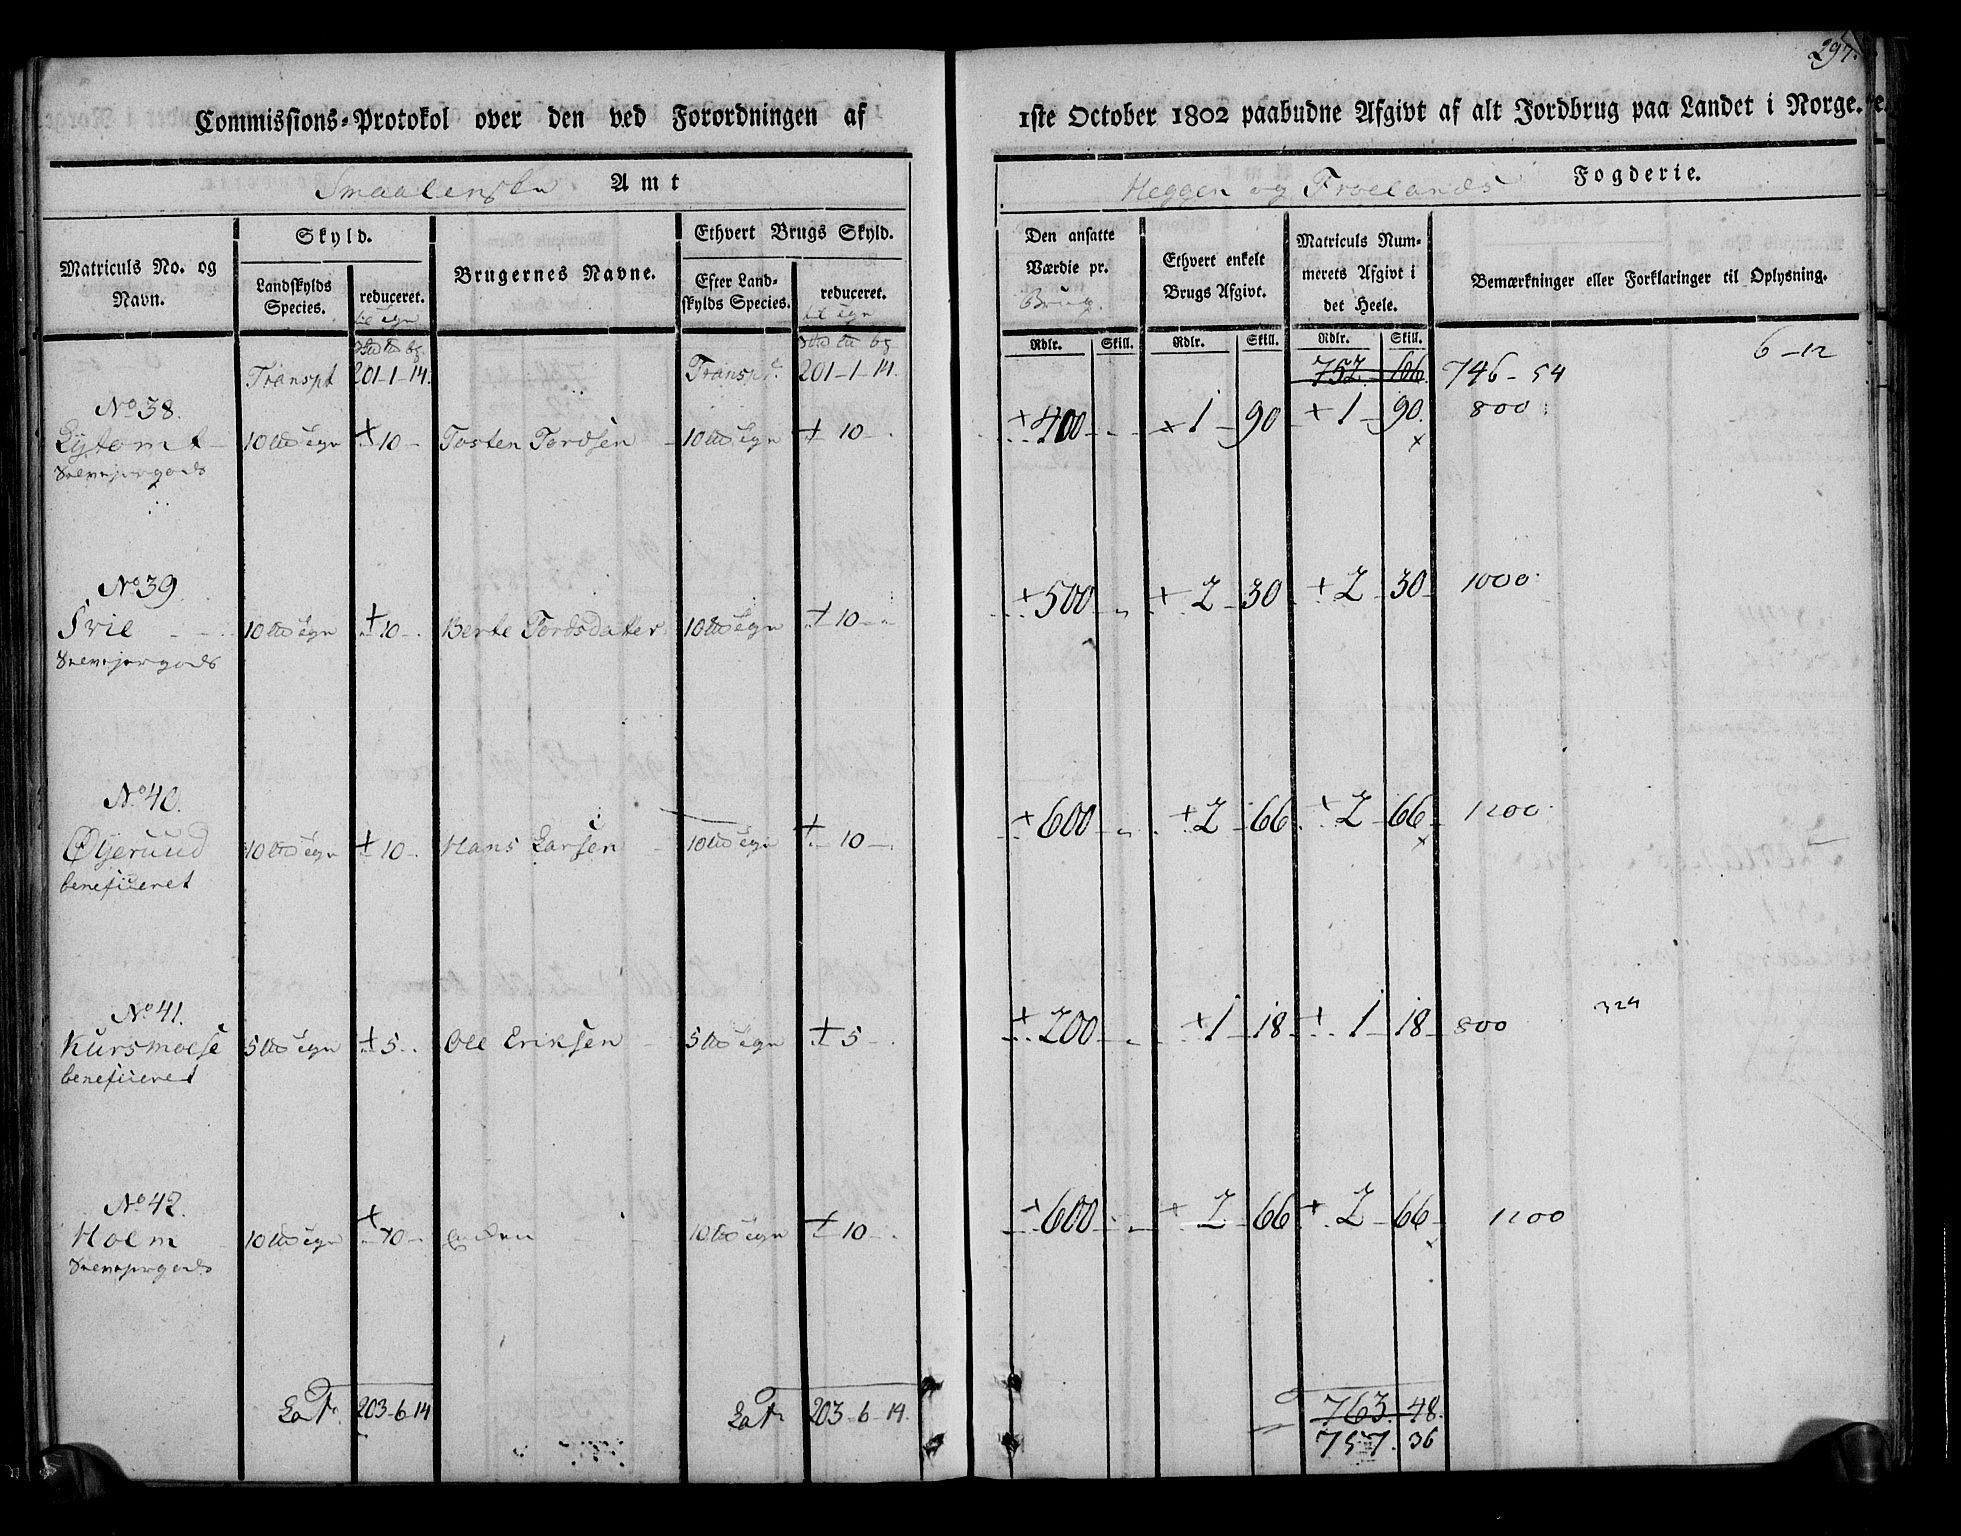 297.
Commissions-Protokol over den ved Forordningen af 1ste October 1802 paabudne Afgivt af alt Jordbrug paa Landet i Norge.
Smaalenske Amt
Heggen og Froelands Fogderie.
Matriculs No. og Navn.
Skyld.
Landskylds Species.
reduceret.
Brugernes Navne.
Ethvert Brugs Skyld.
Efter Landskylds Species.
reduceret.
Den ansatte Værdie pr. Brug.
Ethvert enkelt Brugs Afgivt.
Matriculs Nummerets Afgivt i det Heele.
Bemærkninger eller Forklaringer til Oplysning.
Rdlr. Skill. Rdlr. Skill. Rdlr. Skill.
Transpt 201-1-14. Transpt. 201-1-14. 752 - 66. 746 - 54 6-12
No 38.
Lytomt 10 ± 10 Tosten Tordsen 10 ± 10 400 1 90 1 90. 800
No 39.
Svie 10 ± 10 Berte Tordsdater 10 ± 10 500 2 30 2 30 1000
No 40.
Øyeruud 10 ± 10 Hans Larsen 10 ± 10 600 2 66 2 66 1200
beneficeret
No 41.
Kursmoese 5 ± 5 Ole Eriksen 5 ± 5 200 1 18 1 18 800 324
beneficeret
No 42.
Holm 10 ± 10 10 ± 10 600 2 66 2 66 1200
Lat. 203-6-14 Lat. 203-6-14. 763. 48.
757. 36